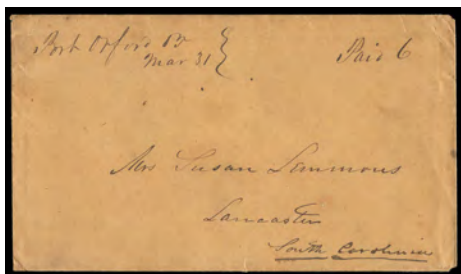 Port Orford OT
Mar 31
Paid 6
Mrs Susan Lemmons
Lancaster
South Carolina